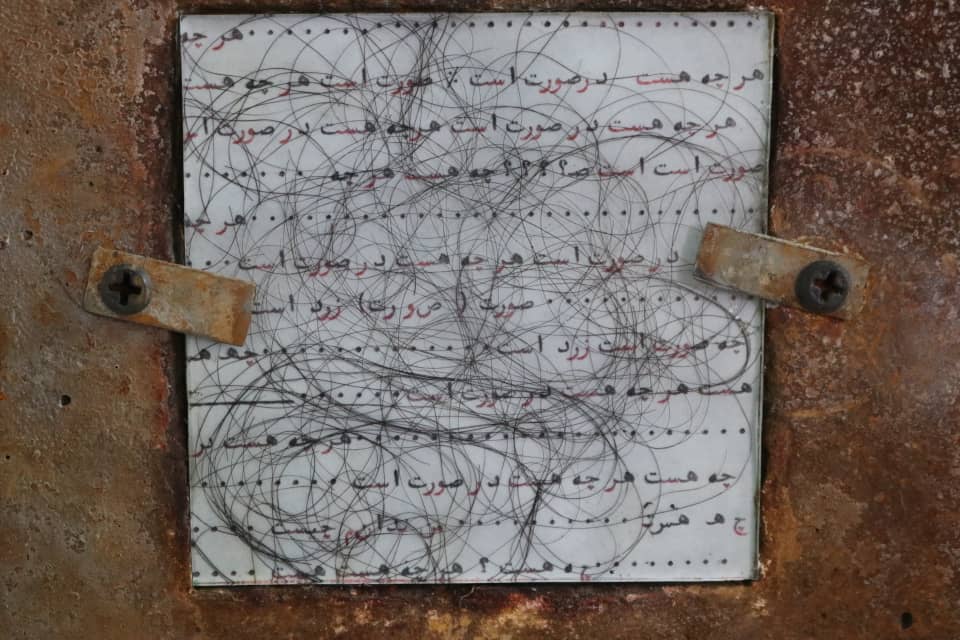 هر چه
هر چه هست در صورت است : صورت است هر چه هست
هر چه هست در صورت است هر چه هست در صورت
صورت است است ص؟؟؟؟ چه هست هر چه .......
هر چه
در صورت است هر چه هست در صورت است ..
صورت ( ص و رت) زرد است
چه صورت است زرد است .......... چه
هست هر چه هست در صورت است ......
هر چه هست در
چه هست هر چه هست در صورت است .......
چ هـ هست چیست
چه هست ؟ هر چه هست